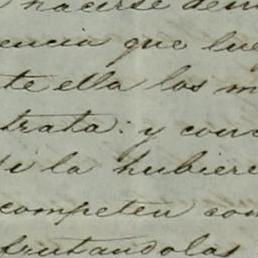 hacerse dem
encia que lue
te ella los m
trata: y conc
di la hubiere
competen com
frutandolas